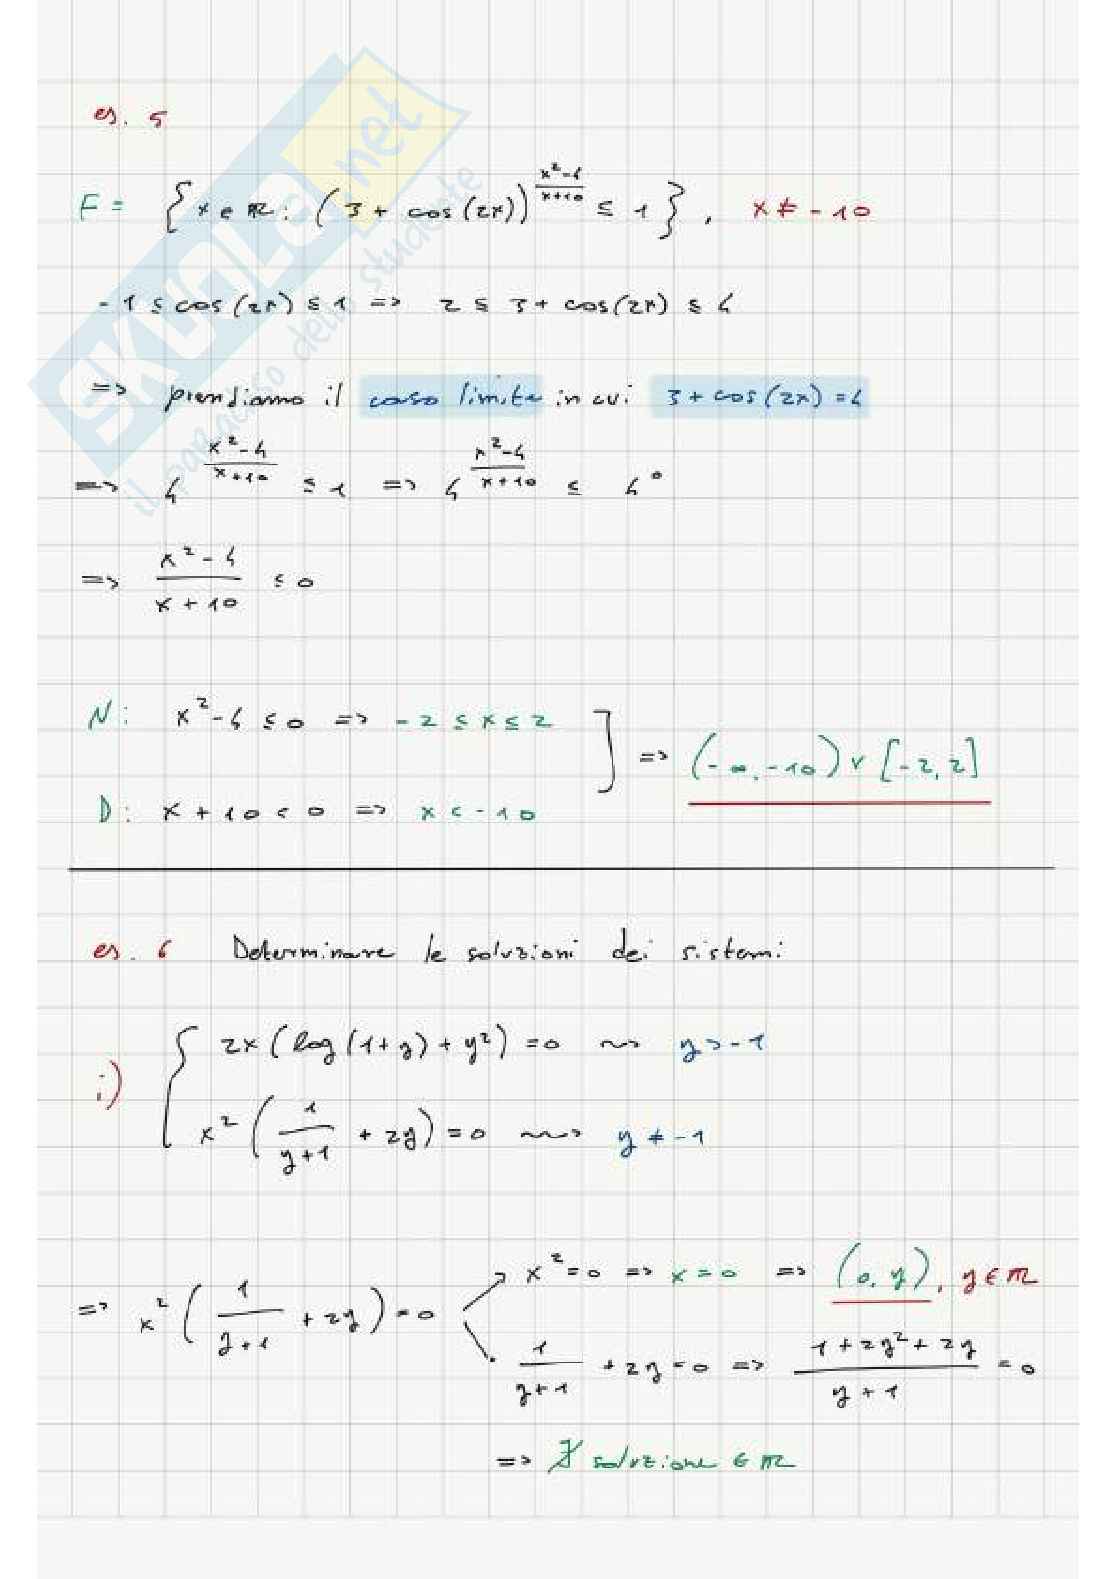 es. 5
F = { x ∈ ℝ : (3 + cos(2x))^((x²-4)/(x+10)) ≤ 1 } , x ≠ -10
-1 ≤ cos(2x) ≤ 1 => 2 ≤ 3 + cos(2x) ≤ 4
=> prendiamo il caso limite in cui 3 + cos(2x) = 4
=> 4^((x²-4)/(x+10)) ≤ 1 => 4^((x²-4)/(x+10)) ≤ 4⁰
=> (x²-4)/(x+10) ≤ 0
N: x²-4 ≤ 0 => -2 ≤ x ≤ 2 ] => (-∞,-10) ∨ [-2,2]
D: x + 10 < 0 => x < -10
es. 6 Determinare le soluzioni dei sistemi
i) { 2x(log(1+y) + y²) = 0 ~> y > -1
x²(1/(y+1) + 2y) = 0 ~~> y ≠ -1
=> x²(1/(y+1) + 2y) = 0
x² = 0 => x = 0 => (0,y), y ∈ ℝ
1/(y+1) + 2y = 0 => (1+2y²+2y)/(y+1) = 0
=> ∄ soluzione ∈ ℝ
SKUOLA.net
il paradiso dello studente